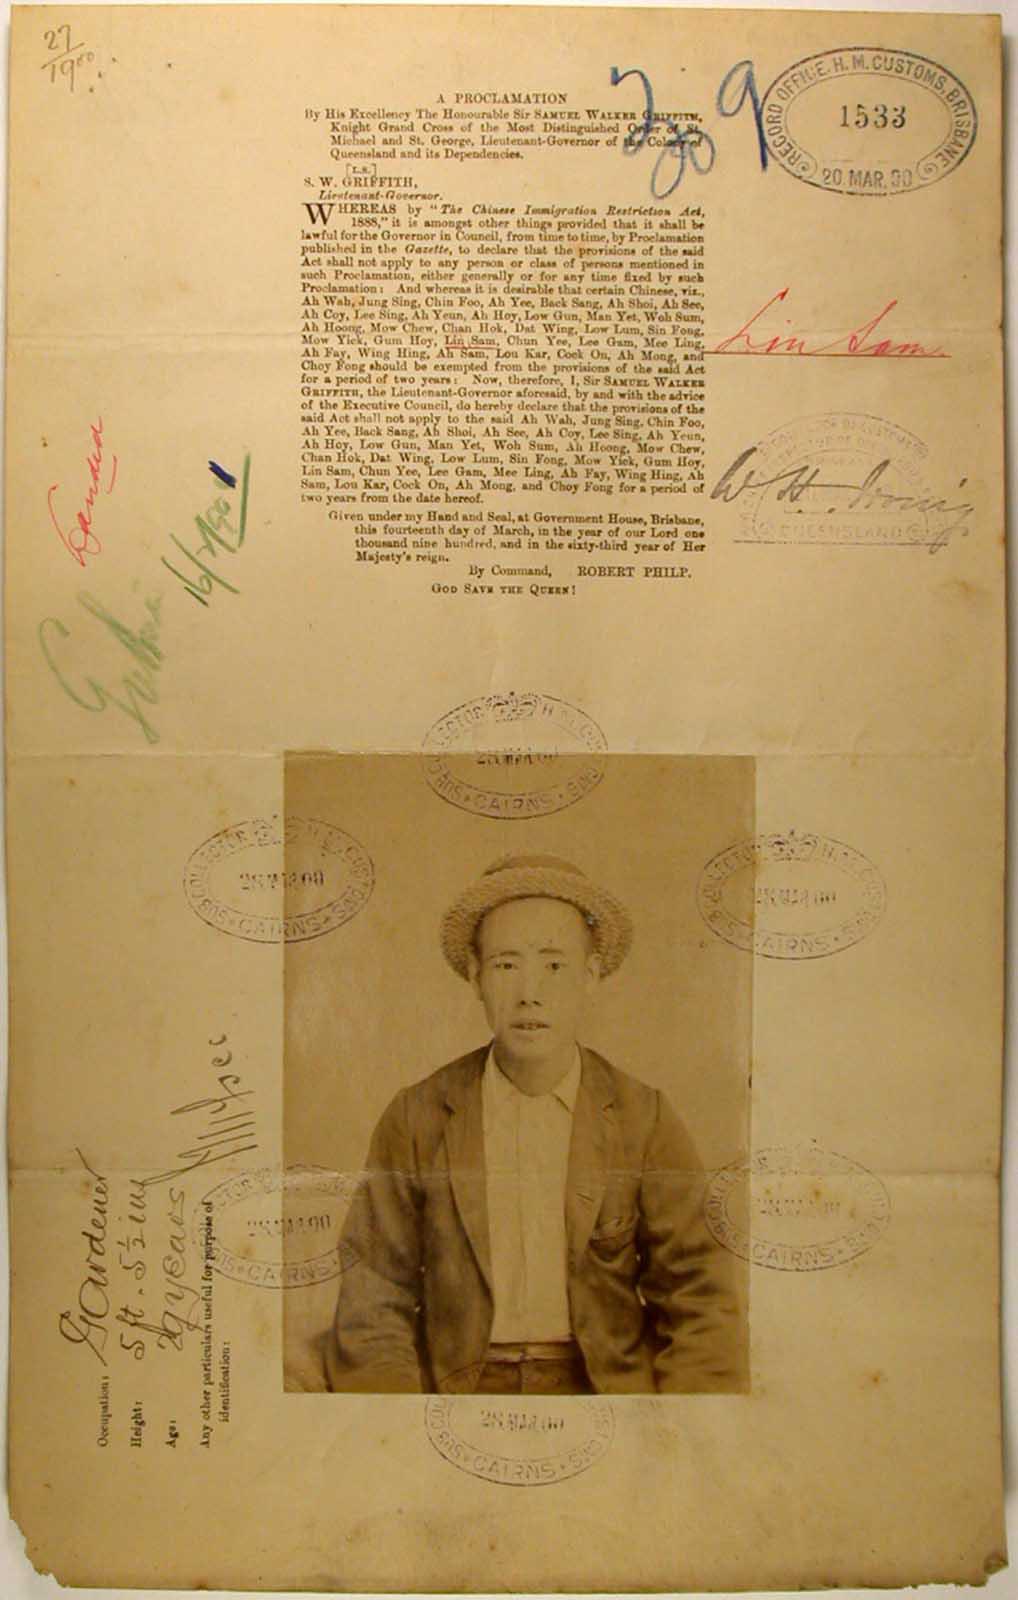 27
1900
RECORD OFFICE. H. M. CUSTOMS, BRISBANE
1533
20. MAR. 00
A PROCLAMATION
By His Excellency The Honourable Sir SAMUEL WALKER GRIFFITH,
Knight Grand Cross of the Most Distinguished Order of St.
Michael and St. George, Lieutenant-Governor of the Colony of
Queensland and its Dependencies.
[L.S.]
S. W. GRIFFITH,
Lieutenant-Governor.
WHEREAS by "The Chinese Immigration Restriction Act,
1888," it is amongst other things provided that it shall be
lawful for the Governor in Council, from time to time, by Proclamation
published in the Gazette, to declare that the provisions of the said
Act shall not apply to any person or class of persons mentioned in
such Proclamation, either generally or for any time fixed by such
Proclamation: And whereas it is desirable that certain Chinese, viz.,
Ah Wah, Jung Sing, Chin Foo, Ah Yee, Back Sang, Ah Shoi, Ah See,
Ah Coy, Lee Sing, Ah Yeun, Ah Hoy, Low Gun, Man Yet, Woh Sum,
Ah Hoong, Mow Chew, Chan Hok, Dat Wing, Low Lum, Sin Fong,
Mow Yick, Gum Hoy, Lin Sam, Chun Yee, Lee Gam, Mee Ling,
Ah Fay, Wing Hing, Ah Sam, Lou Kar, Cock On, Ah Mong, and
Choy Fong should be exempted from the provisions of the said Act
for a period of two years: Now, therefore, I, Sir SAMUEL WALKER
GRIFFITH, the Lieutenant-Governor aforesaid, by and with the advice
of the Executive Council, do hereby declare that the provisions of the
said Act shall not apply to the said Ah Wah, Jung Sing, Chin Foo,
Ah Yee, Back Sang, Ah Shoi, Ah See, Ah Coy, Lee Sing, Ah Yeun,
Ah Hoy, Low Gun, Man Yet, Woh Sum, Ah Hoong, Mow Chew,
Chan Hok, Dat Wing, Low Lum, Sin Fong, Mow Yick, Gum Hoy,
Lin Sam, Chun Yee, Lee Gam, Mee Ling, Ah Fay, Wing Hing, Ah
Sam, Lou Kar, Cock On, Ah Mong, and Choy Fong for a period of
two years from the date hereof.
Given under my Hand and Seal, at Government House, Brisbane,
this fourteenth day of March, in the year of our Lord one
thousand nine hundred, and in the sixty-third year of Her
Majesty's reign.
By Command, ROBERT PHILP.
GOD SAVE THE QUEEN!
Lin Sam
W. H. Irving
QUEENSLAND
SUB COLLECTOR H. M. CUSTOMS
CAIRNS
28 MAR 00
SUB COLLECTOR H. M. CUSTOMS
CAIRNS
28 MAR 00
SUB COLLECTOR H. M. CUSTOMS
CAIRNS
28 MAR 00
SUB COLLECTOR
CAIRNS
28 MAR 00
SUB COLLECTOR
CAIRNS
SUB COLLECTOR
CAIRNS
28 MAR 00
Occupation: Gardener
Height: 5 ft. 5½ ins
Age: 29 years
Any other particulars useful for purpose of
identification: